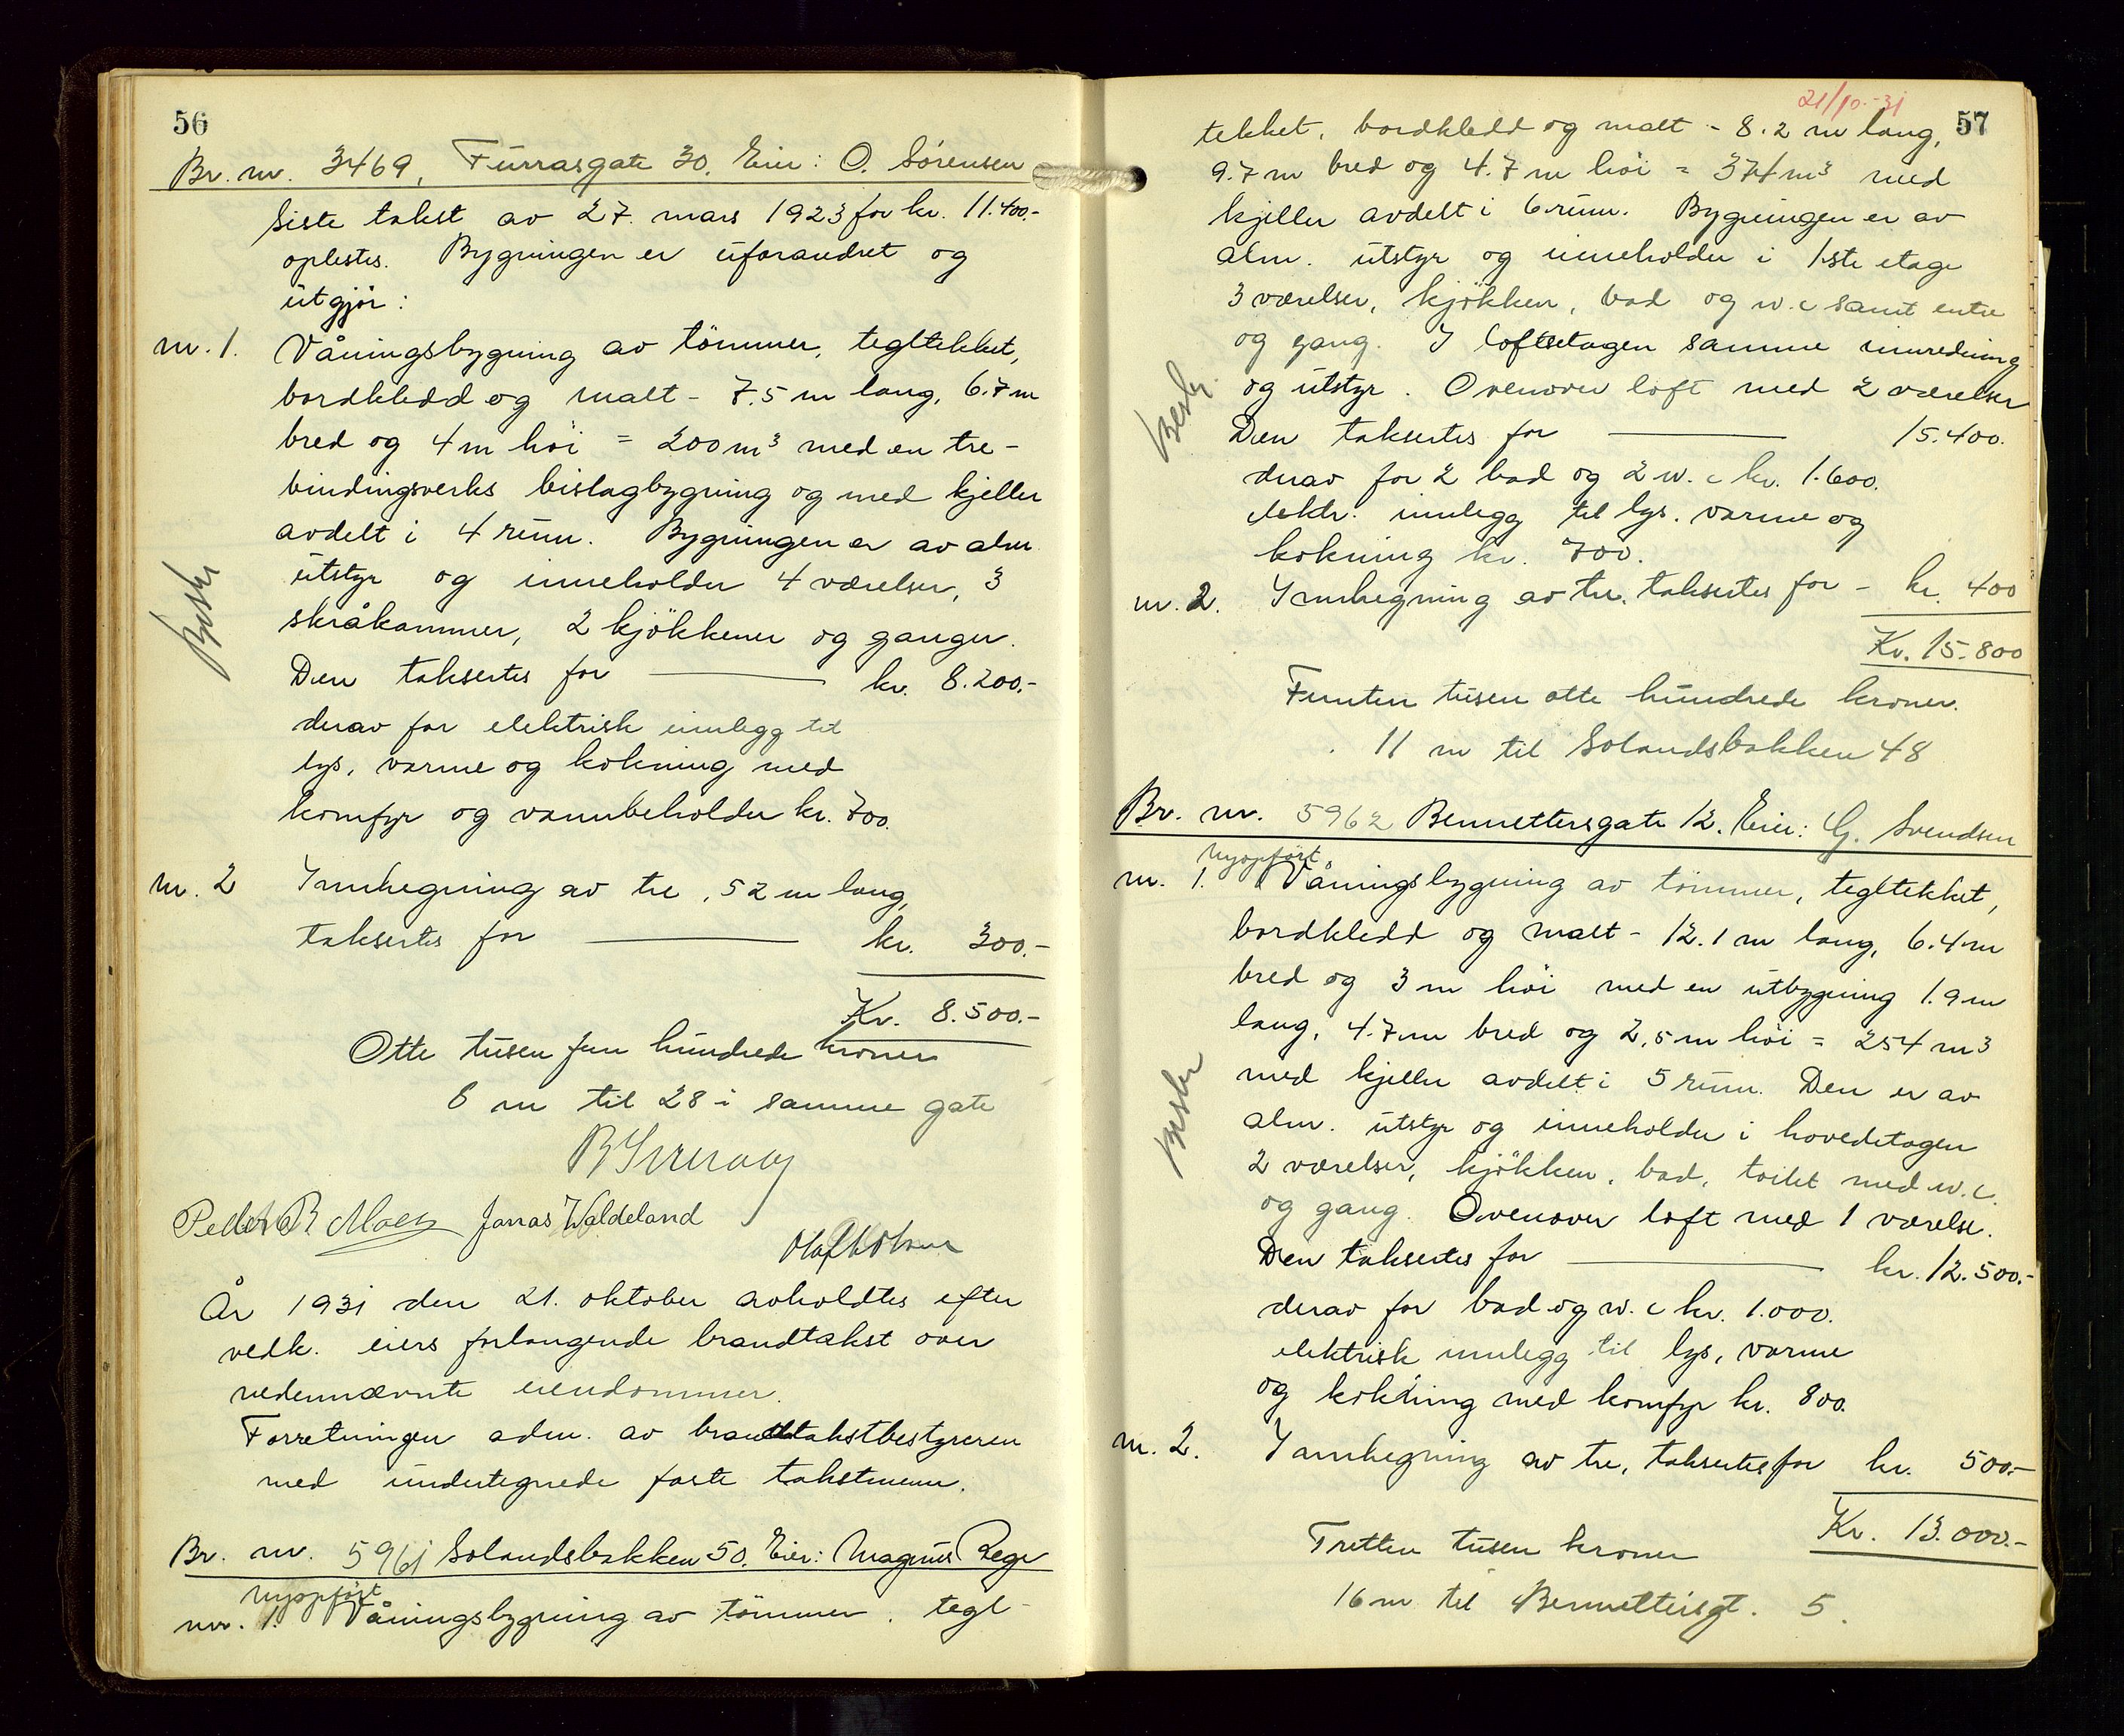 56
Br. nr. 3469, Furrasgate 30. Eier: O. Sørensen
Siste takst av 27. mars 1923 for kr. 11.400.-
oplestes. Bygningen er uforandret og
utgjør:
nr. 1. Våningsbygning av tömmer, tegltekket,
bordkledd og malt - 7.5 m lang, 6.7 m
bred og 4 m höi = 200 m³ med en tre-
bindingsverks bislagbygning og med kjeller
avdelt i 4 rum. Bygningen er av alm
utstyr og inneholder 4 værelser, 3
skråkammer, 2 kjökkener og ganger.
Den taksertes for kr. 8.200.-
derav for elektrisk innlegg til
lys, varme og kokning med
komfyr og vannbeholder kr. 700.
Beskr
nr. 2 Innhegning av tre, 52 m lang,
taksertes for kr. 300.-
Kr. 8.500.-
Otte tusen fem hundrede kroner
6 m til 28 i samme gate
Jonas Waldeland
År 1931 den 21. oktober avholdtes efter
vedk. eiers forlangende brandtakst over
nedennævnte eiendommer.
Forretningen adm. av brandtakstbestyreren
med undertegnede faste takstmenn.
Br. nr. 5961 Solandsbakken 50. Eier: Magnus Rege
nyopført
nr. 1. Våningsbygning av tömmer, tegl-
21/10.-31
57
tekket, bordkledd og malt - 8.2 m lang,
9.7 m bred og 4.7 m höi = 374 m³ med
kjeller avdelt i 6 rum. Bygningen er av
alm. utstyr og inneholder i 1ste etage
3 værelser, kjökken, bad og w.c samt entre
og gang. I loftsetagen samme innredning
og utstyr. Ovenover loft med 2 værelser
Den taksertes for 15.400.
derav for 2 bad og 2 w.c kr. 1.600.
elektr. innlegg til lys, varme og
kokning kr. 700.
Beskr.
nr. 2. Innhegning av tre, taksertes for - kr. 400
Kr. 15.800
Femten tusen otte hundrede kroner.
11 m til Solandsbakken 48
Br. nr. 5962 Bennettersgate 12. Eier: G. Svendsen
nyopført
nr. 1. Våningsbygning av tömmer, tegltekket,
bordkledd og malt - 12.1 m lang, 6.4 m
bred og 3 m höi med en utbygning 1.9 m
lang, 4.7 m bred og 2,5 m höi = 254 m³
med kjeller avdelt i 5 rum. Den er av
alm. utstyr og inneholder i hovedetagen
2 værelser, kjökken, bad, toilet med w.c.
og gang. Ovenover loft med 1 værelse.
Den taksertes for kr. 12.500.-
derav for bad og w.c kr. 1.000.
elektrisk innlegg til lys, varme
og kokning med komfyr kr. 800.
Beskr
nr. 2. Innhegning av tre, taksertes for kr. 500.-
Kr. 13.000.-
Tretten tusen kroner
16 m til Bennettersgt. 5.